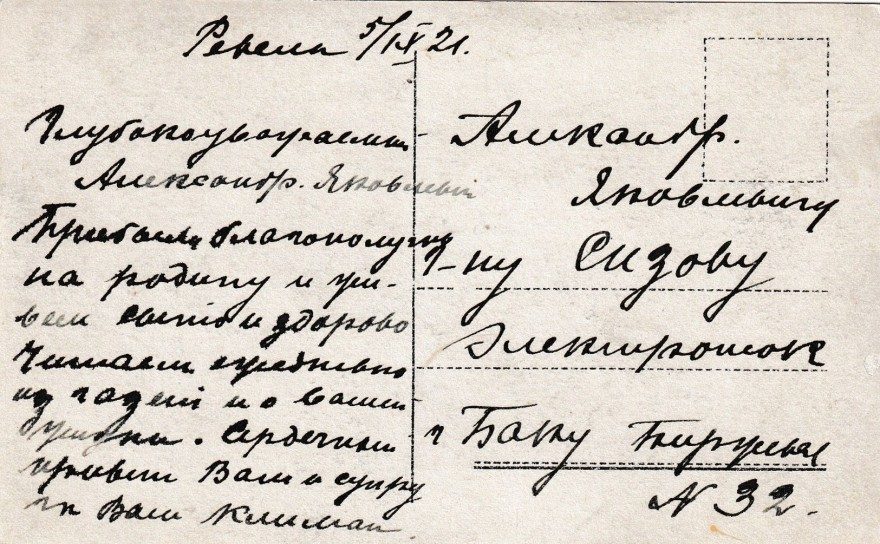 Ревель 5/IX 21.
Глубокоуважаемый
Александр. Яковлевич
Прибыли благополучно
на родину и
сытно и здорово
Читаем ежедневно
из газет и о вашей
Сердечный
привет Вам и супру
ге Ваш Климан
Александр.
Яковлевичу
Г-ну Сидову
Электроток
г Баку Биржевая
N 32.